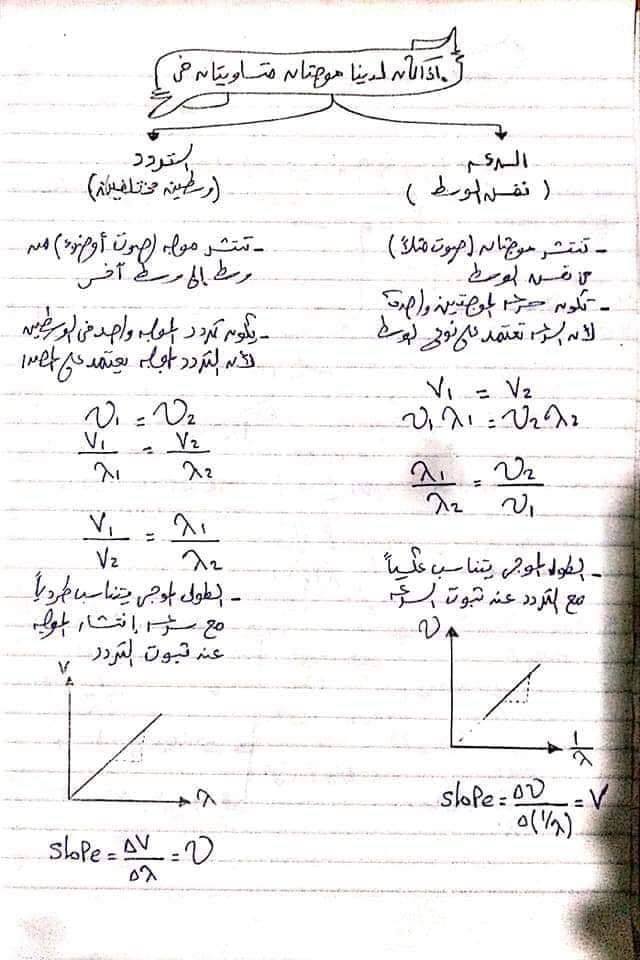 إذا كان لدينا موجتان متساويتان في
السرعة
(نفس الوسط)
- تنتشر موجتان (صوت مثلاً)
في نفس الوسط
- تكون سرعة الموجتين واحدة
لأن السرعة تعتمد على نوع الوسط
V₁ = V₂
υ₁ λ₁ = υ₂ λ₂
λ₁/λ₂ = υ₂/υ₁
- الطول الموجي يتناسب عكسياً
مع التردد عند ثبوت السرعة
υ
1/λ
slope = Δυ/Δ(1/λ) = V
التردد
(وسطين مختلفين)
- تنتشر موجه (صوت أو ضوء) من
وسط إلى وسط آخر
- يكون تردد الموجه واحد في الوسطين
لأن التردد الموجه يعتمد على المصدر
υ₁ = υ₂
V₁/λ₁ = V₂/λ₂
V₁/V₂ = λ₁/λ₂
- الطول الموجي يتناسب طردياً
مع سرعة إنتشار الموجه
عند ثبوت التردد
V
λ
slope = ΔV/Δλ = υ